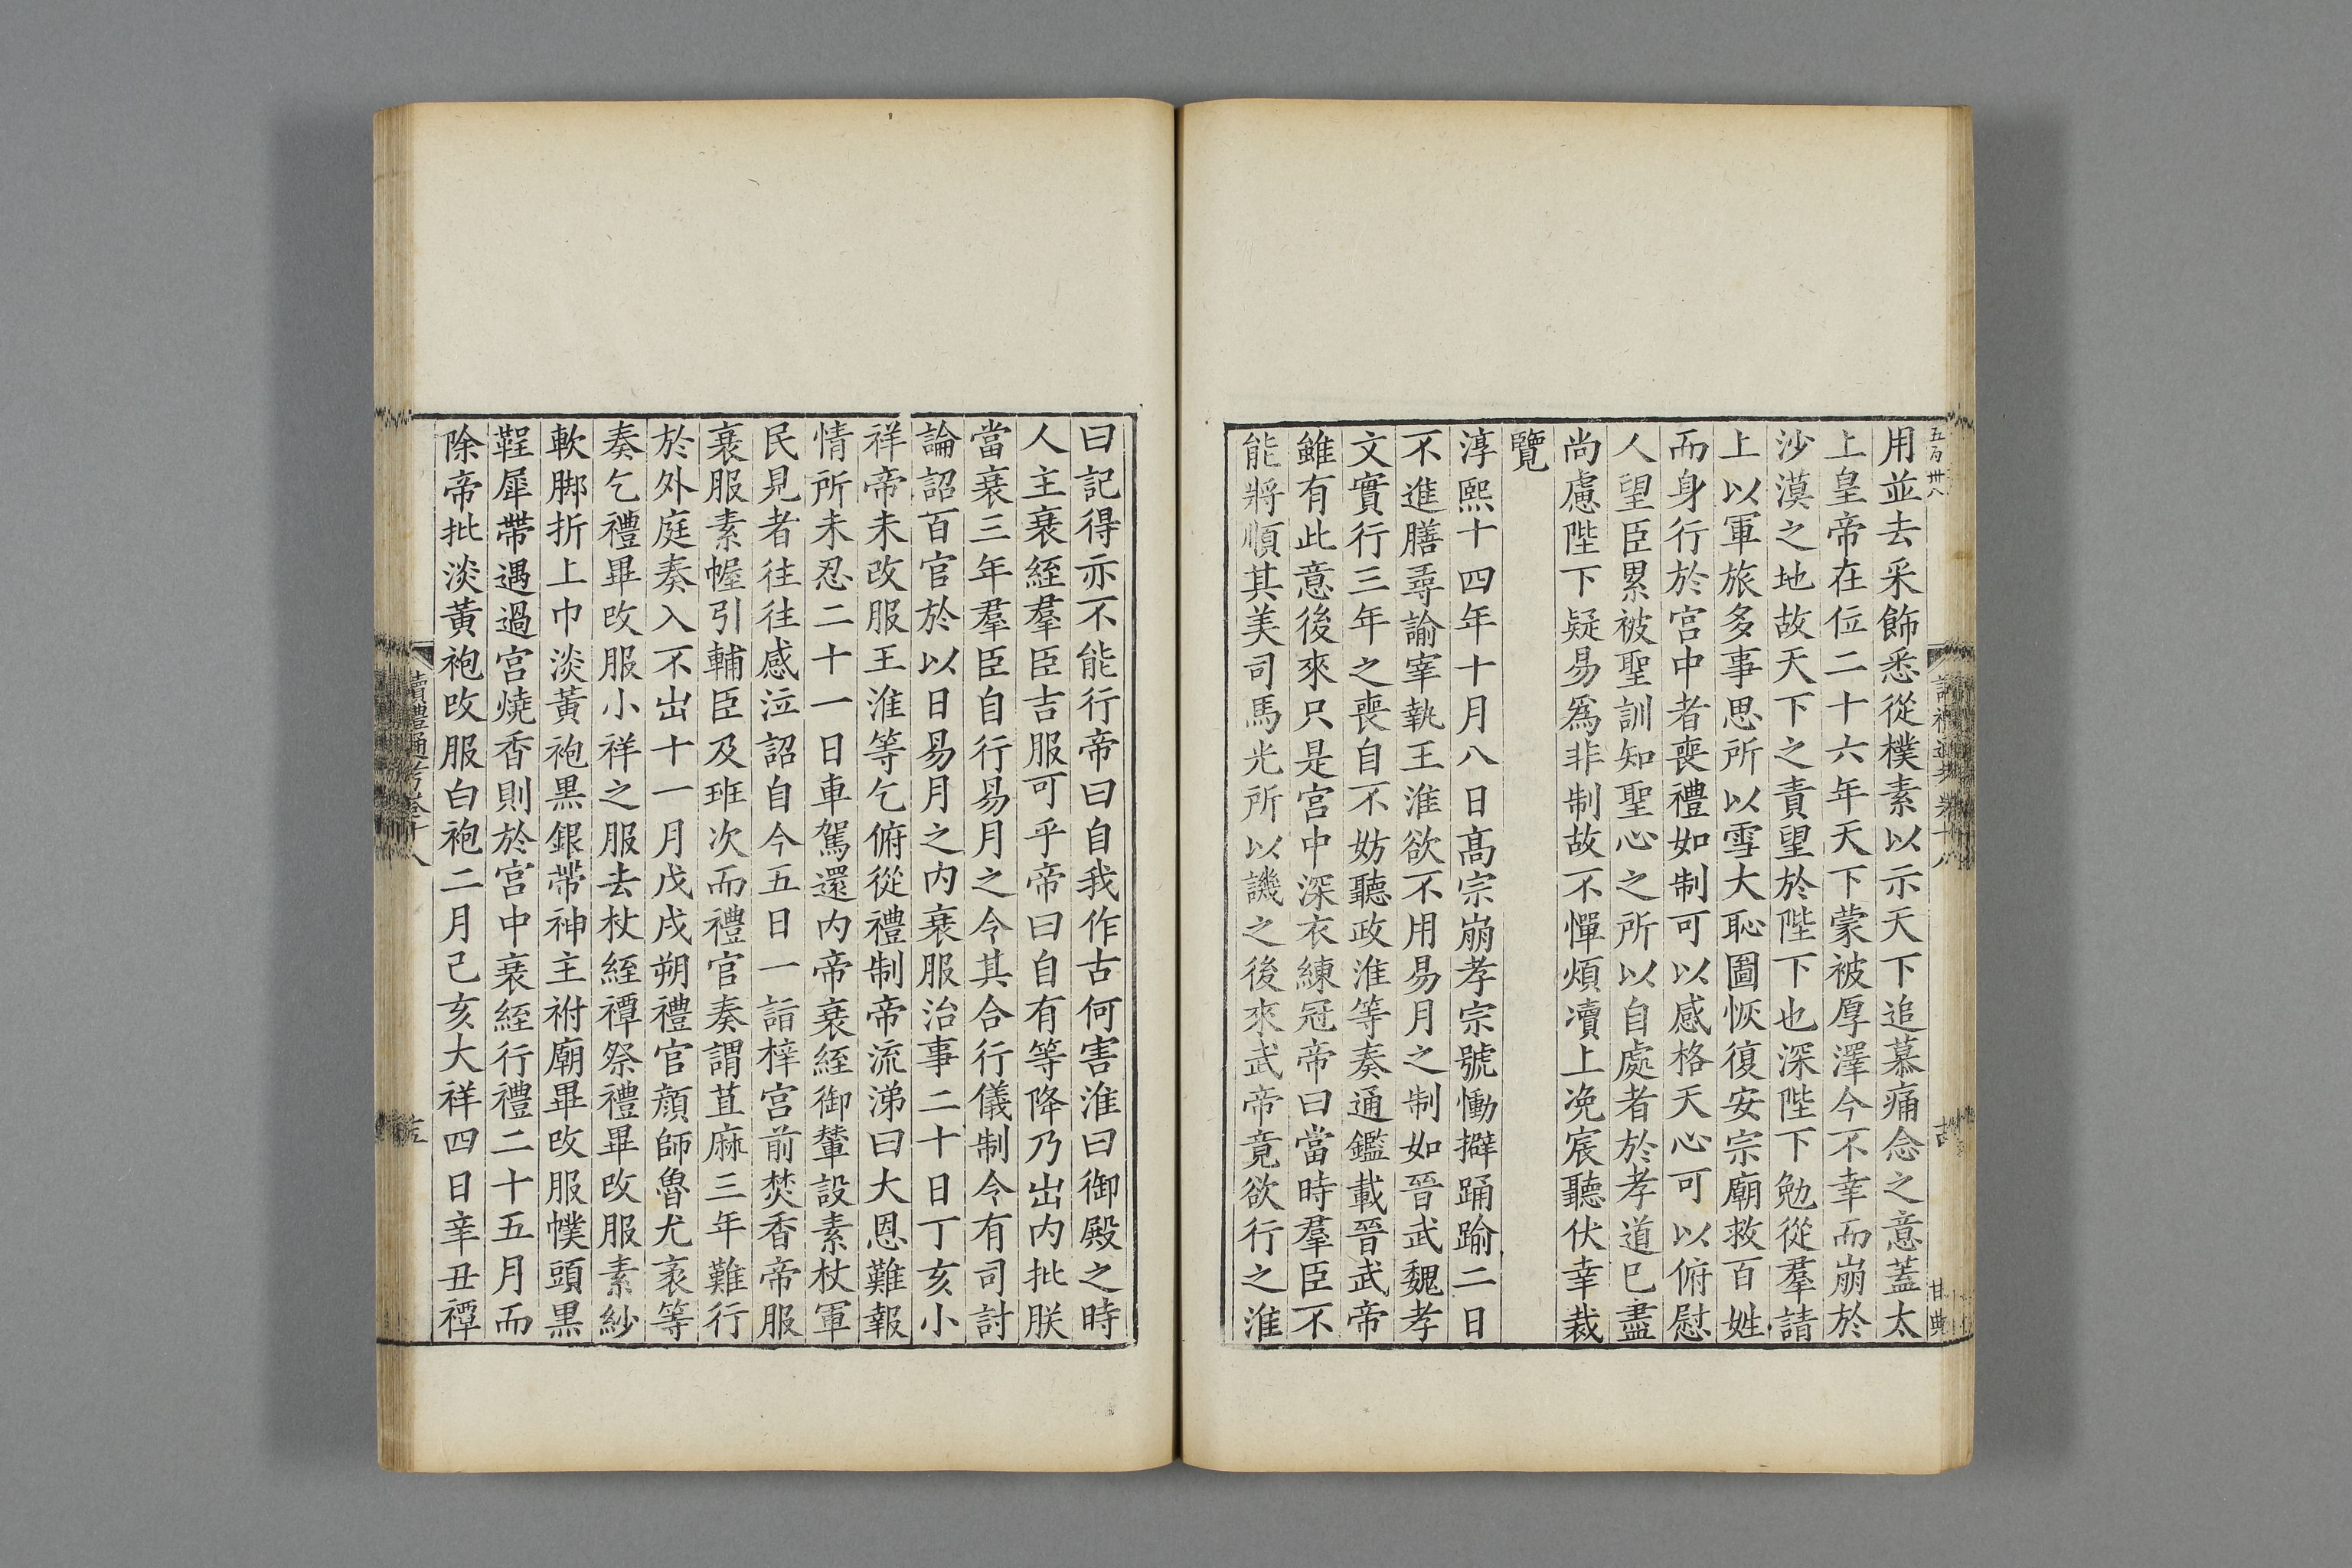 五百卅八
用並去采飾悉從樸素以示天下追慕痛念之意蓋太
上皇帝在位二十六年天下蒙被厚澤今不幸而崩於
沙漠之地故天下之責望於陛下也深陛下勉從羣請
上以軍旅多事思所以雪大恥圖恢復安宗廟救百姓
而身行於宮中者喪禮如制可以感格天心可以俯慰
人望臣累被聖訓知聖心之所以自處者於孝道已盡
尚慮陛下疑易爲非制故不憚煩凟上冼宸聽伏幸裁
覽
淳熙十四年十月八日高宗崩孝宗號慟擗踊踰二日
不進膳尋諭宰執王淮欲不用易月之制如晉武魏孝
文實行三年之喪自不妨聽政淮等奏通鑑載晉武帝
雖有此意後來只是宮中深衣練冠帝曰當時羣臣不
能將順其美司馬光所以譏之後來武帝竟欲行之淮
曰記得亦不能行帝曰自我作古何害淮曰御殿之時
人主衰絰羣臣吉服可乎帝曰自有等降乃出內批朕
當衰三年羣臣自行易月之令其合行儀制令有司討
論詔百官於以日易月之內衰服治事二十日丁亥小
祥帝未改服王淮等乞俯從禮制帝流涕曰大恩難報
情所未忍二十一日車駕還內帝衰絰御輦設素杖軍
民見者往往感泣詔自今五日一詣梓宮前焚香帝服
衰服素幄引輔臣及班次而禮官奏謂苴麻三年難行
於外庭奏入不出十一月戊戌朔禮官顏師魯尤袤等
奏乞禮畢改服小祥之服去杖絰禫祭禮畢改服素紗
軟脚折上巾淡黃袍黑銀帶神主祔廟畢改服幞頭黑
鞓犀帶遇過宮燒香則於宮中衰絰行禮二十五月而
除帝批淡黃袍改服白袍二月己亥大祥四日辛丑禫
讀禮通考卷十八